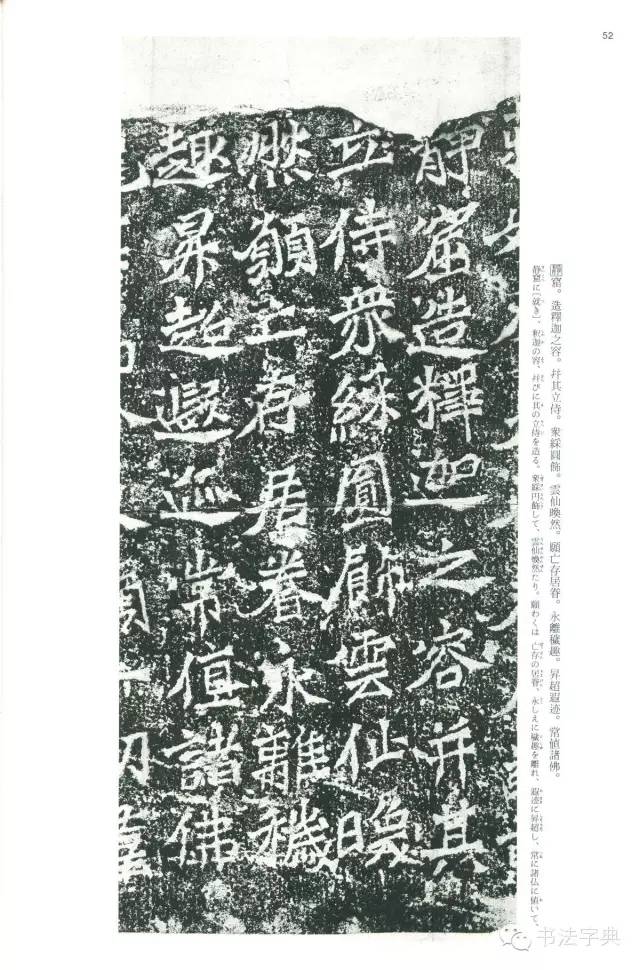 52
靜窟。造釋迦之容。幷其立侍。衆綵圓飾。雲仙㬇然。願亡存居眷。永離穢趣。昇超遐迹。常値諸佛。
静窟に〔就き〕、釈迦の容、幷びに其の立侍を造る。衆綵円飾して、雲仙㬇然たり。願わくは 亡存の居眷、永しえに穢趣を離れ、遐迹に昇超し、常に諸仏に値いて、
靜窟造釋迦之容并其
立侍衆綵圓飾雲仙㬇
然願亡存居眷永離穢
趣昇超遐迹常値諸佛
书法字典